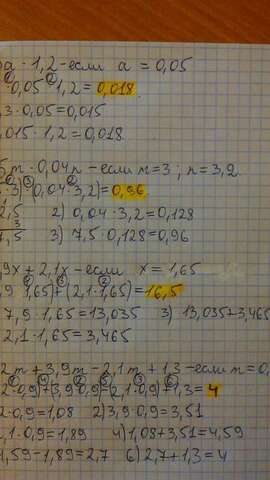 a · 1,2 - если a = 0,05
· 0,05 · 1,2 = 0,018.
,3 · 0,05 = 0,015
,015 · 1,2 = 0,018.
5 m · 0,04 n - если m = 3 ; n = 3,2.
· 3) · (0,04 · 3,2) = 0,96
2) 0,04 · 3,2 = 0,128
3) 7,5 · 0,128 = 0,96
,9x + 2,1x - если x = 1,65
,9 · 1,65) + (2,1 · 1,65) = 16,5
7,9 · 1,65 = 13,035 3) 13,035 + 3,465
2,1 · 1,65 = 3,465
2m + 3,9m - 2,1m + 1,3 - если m = 0,
2 · 0,9) + (3,9 · 0,9) - (2,1 · 0,9) + 1,3 = 4
2 · 0,9 = 1,08 2) 3,9 · 0,9 = 3,51
,1 · 0,9 = 1,89 4) 1,08 + 3,51 = 4,59
4,59 - 1,89 = 2,7 6) 2,7 + 1,3 = 4